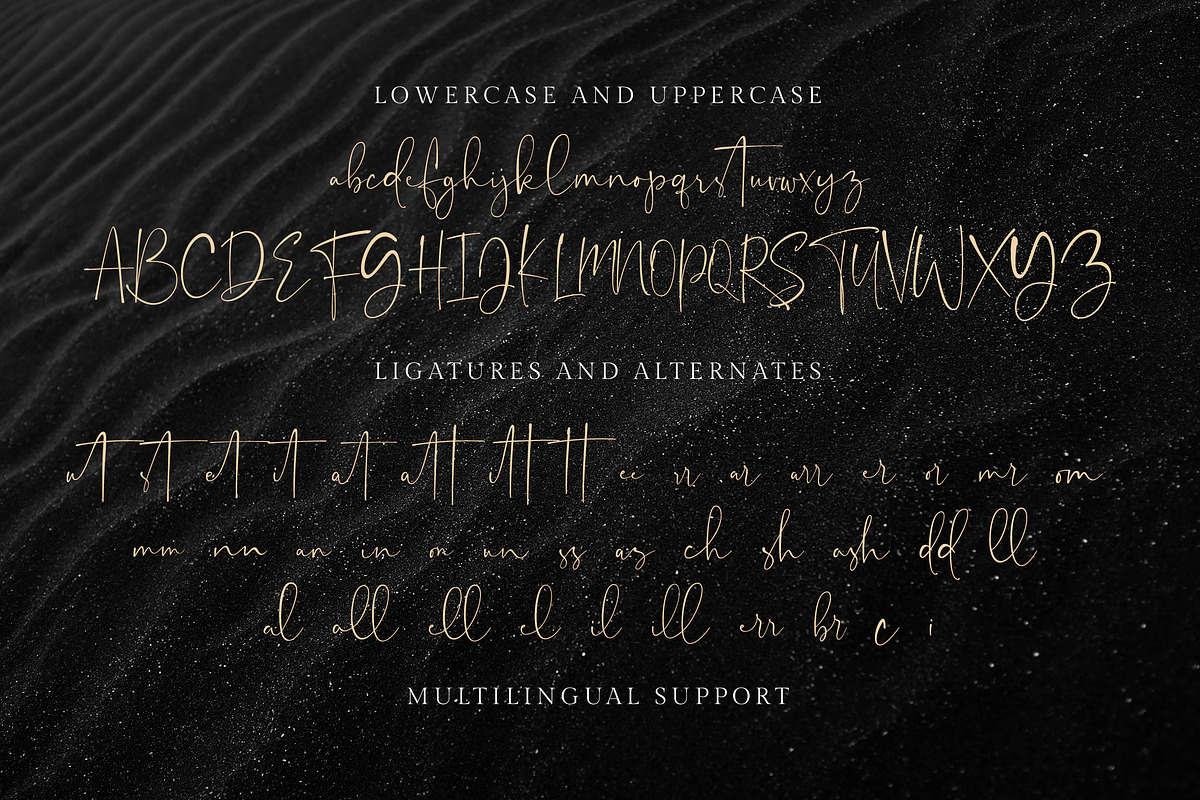 LOWERCASE AND UPPERCASE
abcdefghijklmnopqrstuvwxyz
ABCDEFGHIJKLMNOPQRSTUVWXYZ
LIGATURES AND ALTERNATES
ut st et it at att itt tt ee rr ar arr er or mr om
mm nn an in on un ss as ch sh ash dd ll
al all ell el il ill err br c i
MULTILINGUAL SUPPORT